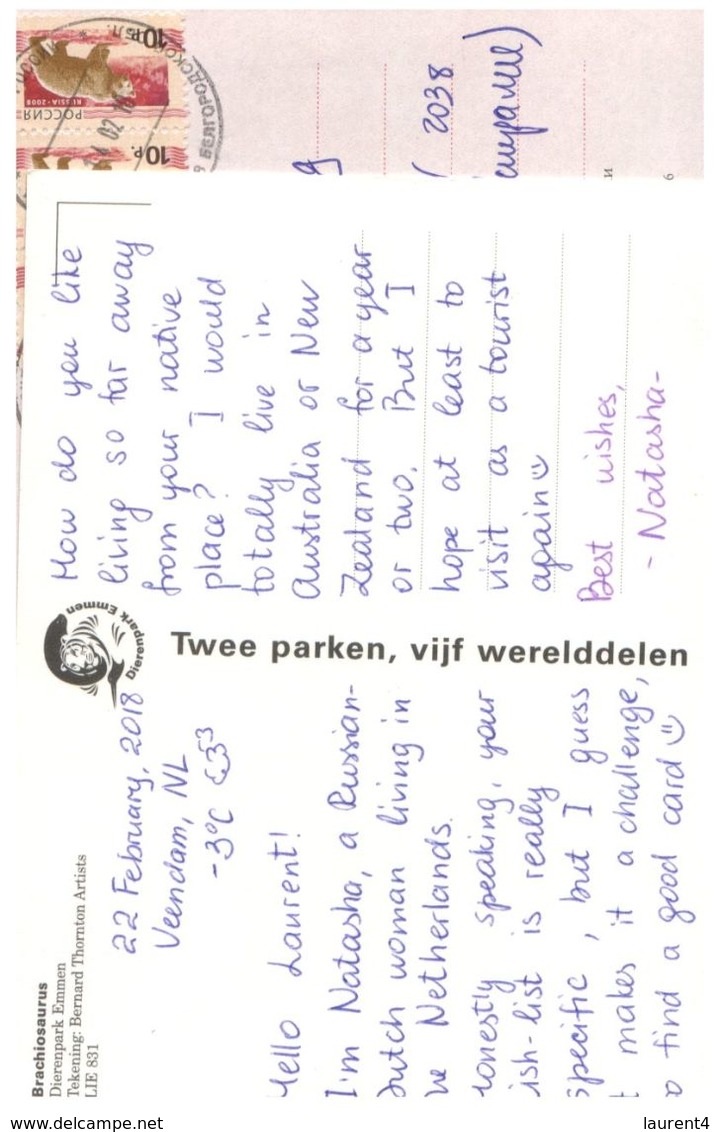 Brachiosaurus
Dierenpark Emmen
Tekening: Bernard Thornton Artists
LIE 831
22 February, 2018
Veendam, NL
-3°C
Hello Laurent!
I'm Natasha, a Russian-
Dutch woman living in
he Netherlands.
Honestly speaking, your
ish-list is really
specific, but I guess
t makes it a challenge,
o find a good card
Dierenpark Emmen
Twee parken, vijf werelddelen
How do you like
living so far away
from your native
place? I would
totally live in
Australia or New
Zealand for a year
or two. But I
hope at least to
visit as a tourist
again
Best wishes,
- Natasha -
10 Р.
РОССИЯ
RUSSIA-2008
10 Р.
БЕЛГОРОДСКОЙ
2038
6
www.delcampe.net
laurent4